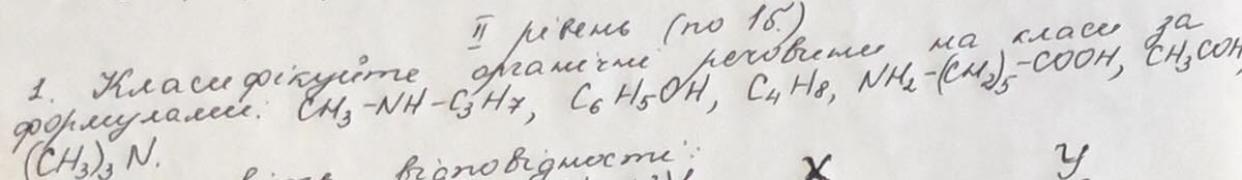 II рівень (по 1б.)
1. Класифікуйте органічні речовини на класи за
формулами: CH₃-NH-C₃H₇, C₆H₅OH, C₄H₈, NH₂-(CH₂)₅-COOH, CH₃COH,
(CH₃)₃N.
відповідності:
X У